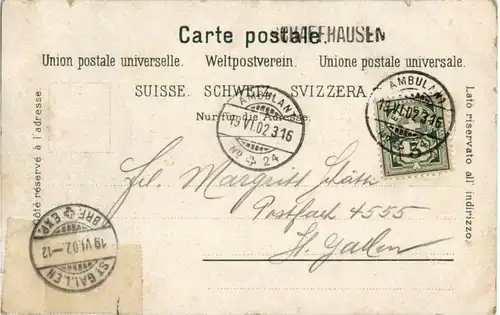 SCHAFFHAUSEN
Carte postale.
Union postale universelle. Weltpostverein. Unione postale universale.
SUISSE. SCHWEIZ. SVIZZERA.
Nur für die Adresse.
Côté réservé à l'adresse
Lato riservato all' indirizzo
AMBULANT
19 VI.02.316
No 24
AMBULANT
19 VI.02.316
5
Frl. Margritt
Postfach 4555
St. Gallen
ST. GALLEN
19 VI.02.–12
BRF. EXP.